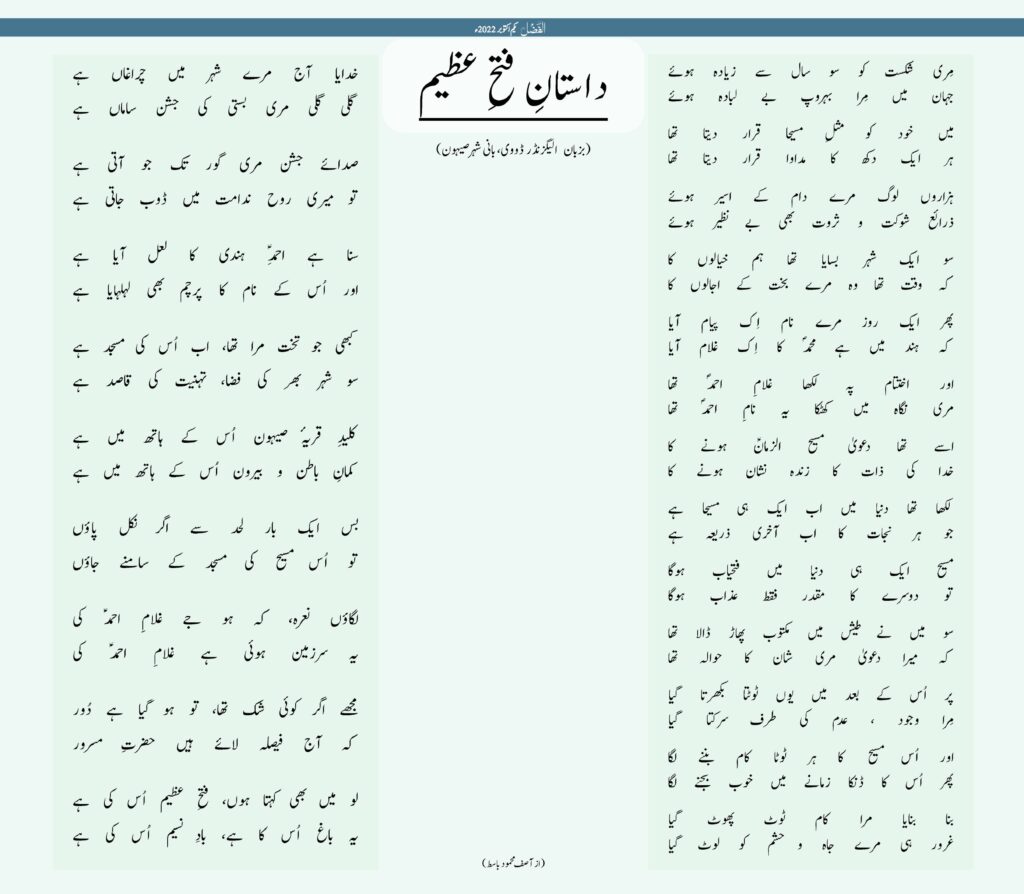 الفضل یکم اکتوبر 2022ء
داستانِ فتحِ عظیم
(بزبان الیگزنڈر ڈووی، بانی شہر صیہون)
مِری شکست کو سو سال سے زیادہ ہوئے
جہان میں مِرا بہروپ بے لبادہ ہوئے
میں خود کو مثلِ مسیحا قرار دیتا تھا
ہر ایک دکھ کا مداوا قرار دیتا تھا
ہزاروں لوگ مرے دام کے اسیر ہوئے
ذرائع شوکت و ثروت بھی بے نظیر ہوئے
سو ایک شہر بسایا تھا ہم خیالوں کا
کہ وقت تھا وہ مرے بخت کے اجالوں کا
پھر ایک روز مرے نام اِک پیام آیا
کہ ہند میں ہے محمدؐ کا اِک غلام آیا
اور اختتام پہ لکھا غلامِ احمدؐ تھا
مری نگاہ میں کھٹکا یہ نامِ احمدؐ تھا
اسے تھا دعویٰ مسیح الزماںؑ ہونے کا
خدا کی ذات کا زندہ نشان ہونے کا
لکھا تھا دنیا میں اب ایک ہی مسیحا ہے
جو ہر نجات کا اب آخری ذریعہ ہے
مسیح ایک ہی دنیا میں فتحیاب ہوگا
تو دوسرے کا مقدر فقط عذاب ہوگا
سو میں نے طیش میں مکتوب پھاڑ ڈالا تھا
کہ میرا دعویٰ مری شان کا حوالہ تھا
پر اُس کے بعد میں یوں ٹوٹتا بکھرتا گیا
مِرا وجود ، عدم کی طرف سرکتا گیا
اور اُس مسیح کا ہر ٹوٹا کام بننے لگا
پھر اُس کا ڈنکا زمانے میں خوب بجنے لگا
بنا بنایا مرا کام ٹوٹ پھوٹ گیا
غرور ہی مرے جاہ و حشم کو لوٹ گیا
خدایا آج مرے شہر میں چراغاں ہے
گلی گلی مری بستی کی جشن ساماں ہے
صدائے جشن مری گور تک جو آتی ہے
تو میری روح ندامت میں ڈوب جاتی ہے
سنا ہے احمدِؑ ہندی کا لعل آیا ہے
اور اُس کے نام کا پرچم بھی لہلہایا ہے
کبھی جو تخت مرا تھا، اب اُس کی مسجد ہے
سو شہر بھر کی فضا، تہنیت کی قاصد ہے
کلیدِ قریۂ صیہون اُس کے ہاتھ میں ہے
کمانِ باطن و بیرون اُس کے ہاتھ میں ہے
بس ایک بار لحد سے اگر نکل پاؤں
تو اُس مسیح کی مسجد کے سامنے جاؤں
لگاؤں نعرہ، کہ ہو جے غلامِ احمدؑ کی
یہ سرزمین ہوئی ہے غلامِ احمدؑ کی
مجھے اگر کوئی شک تھا، تو ہو گیا ہے دُور
کہ آج فیصلہ لائے ہیں حضرتِ مسرور
لو میں بھی کہتا ہوں، فتحِ عظیم اُس کی ہے
یہ باغ اُس کا ہے، بادِ نسیم اُس کی ہے
(از آصف محمود باسط)